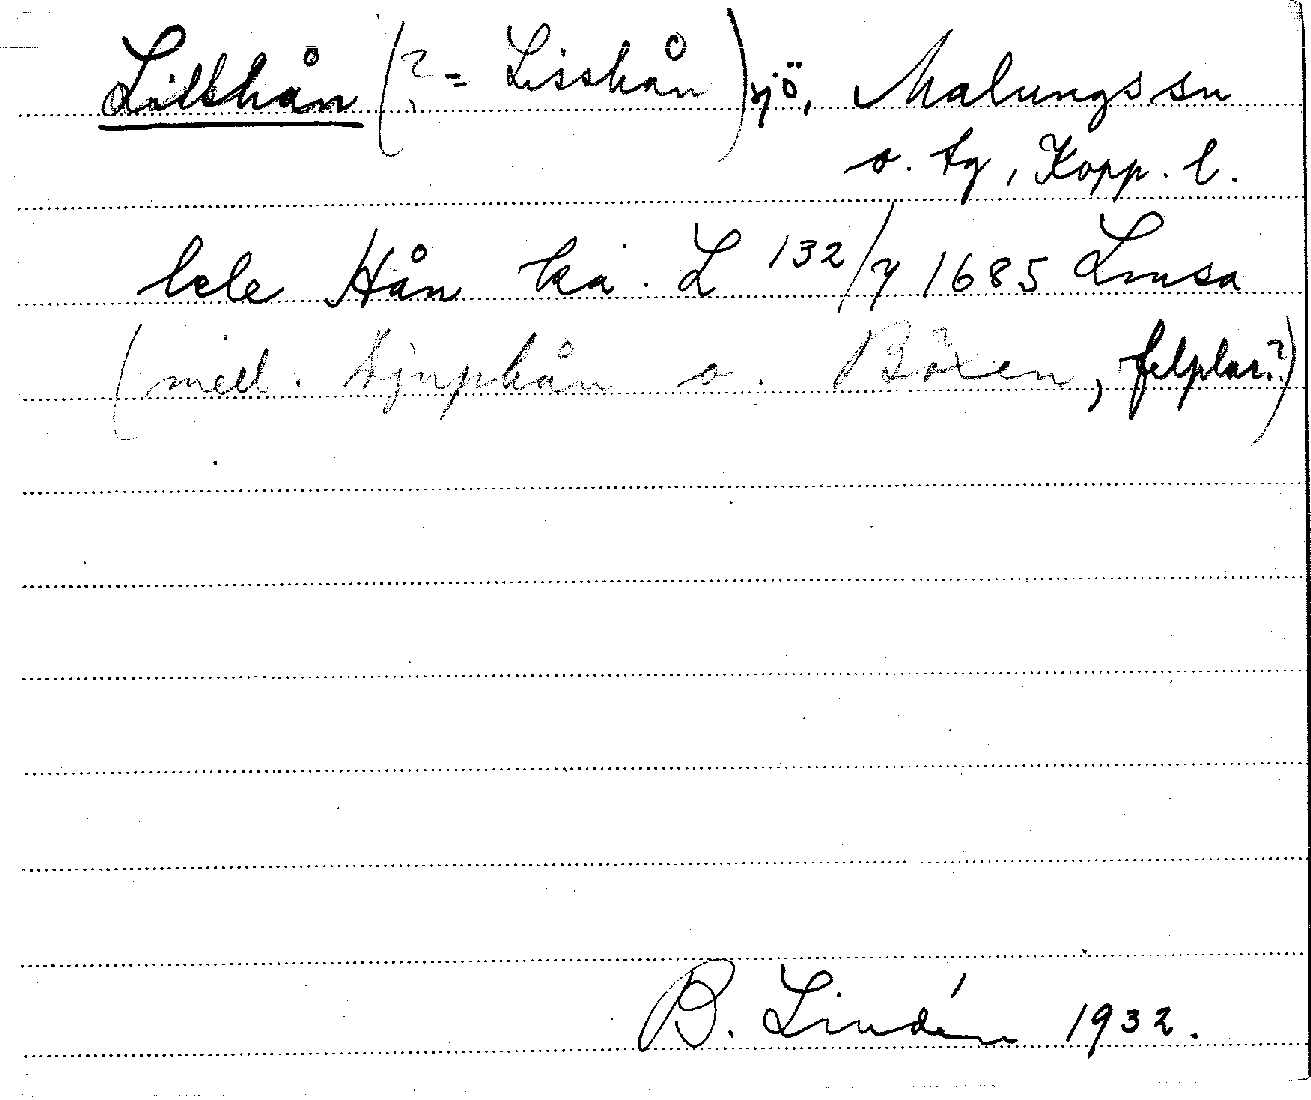 Lillhån (? = Lisshån) sjö, Malungs sn
o. tg, Kopp. l.
lele Hån ka. L 132/7 1685 Lmsa
(mell. Djuphån o. Böxen, felplac.?)
B. Lindén 1932.